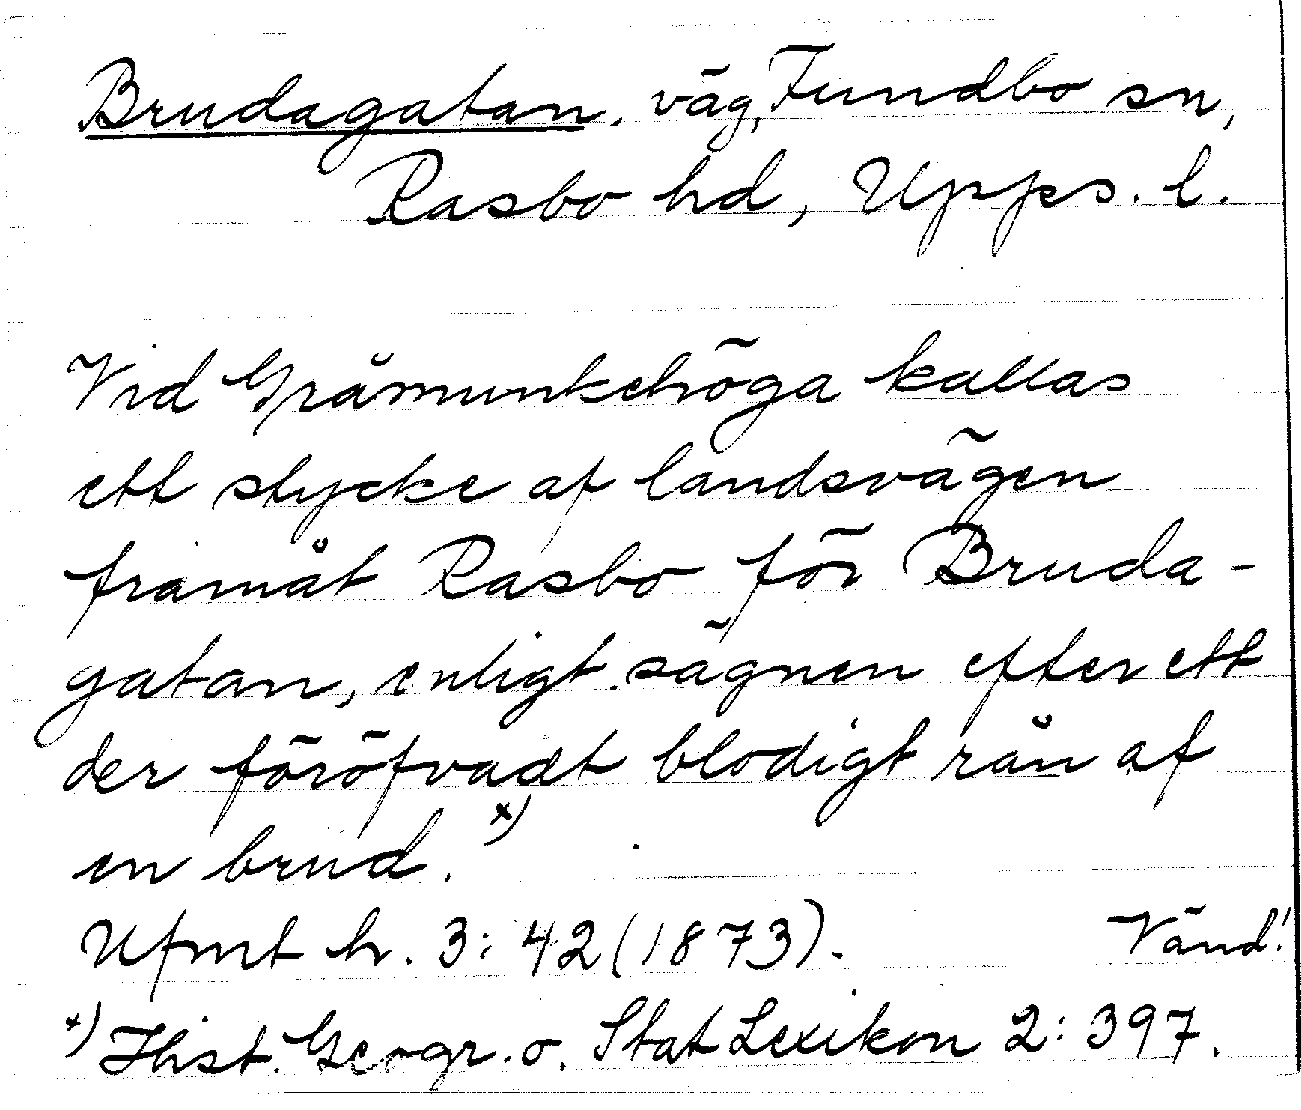 Brudagatan, väg, Funbo sn,
Rasbo hd, Upps. l.
Vid Gråmunkehöga kallas
ett stycke af landsvägen
framåt Rasbo för Bruda-
gatan, enligt sägnen efter ett
der föröfvadt blodigt rån af
en brud. x)
Ufmt h. 3: 42 (1873). Vänd!
x) Hist. Geogr. o. Stat Lexikon 2: 397.